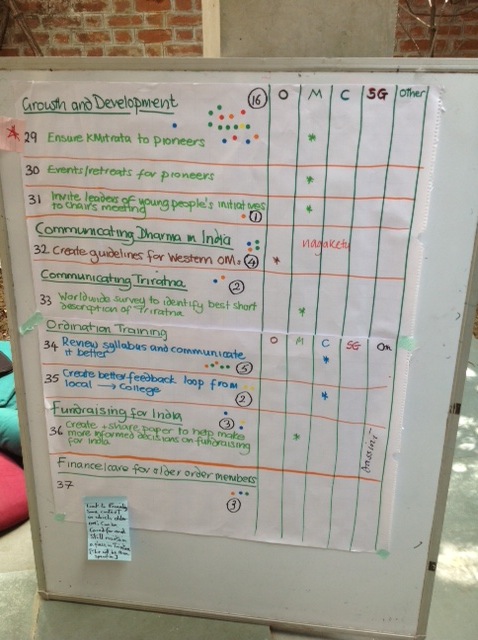 Growth and Development 16 O M C SG Other
* 29 Ensure KMitrata to pioneers *
30 Events/retreats for pioneers *
31 Invite leaders of young people's initiatives
to chairs meeting 1 *
Communicating Dharma in India nagaketu
32 Create guidelines for Western OMs 4 *
Communicating Triratna 2
33 Worldwide survey to identify best short
description of Triratna *
Ordination Training O M C SG
34 Review syllabus and communicate
it better 5 *
35 Create better feedback loop from
local → college 2 *
Fundraising for India 3
36 Create + share paper to help make
more informed decisions on fundraising
for India *
Finance/care for older order members
37
3